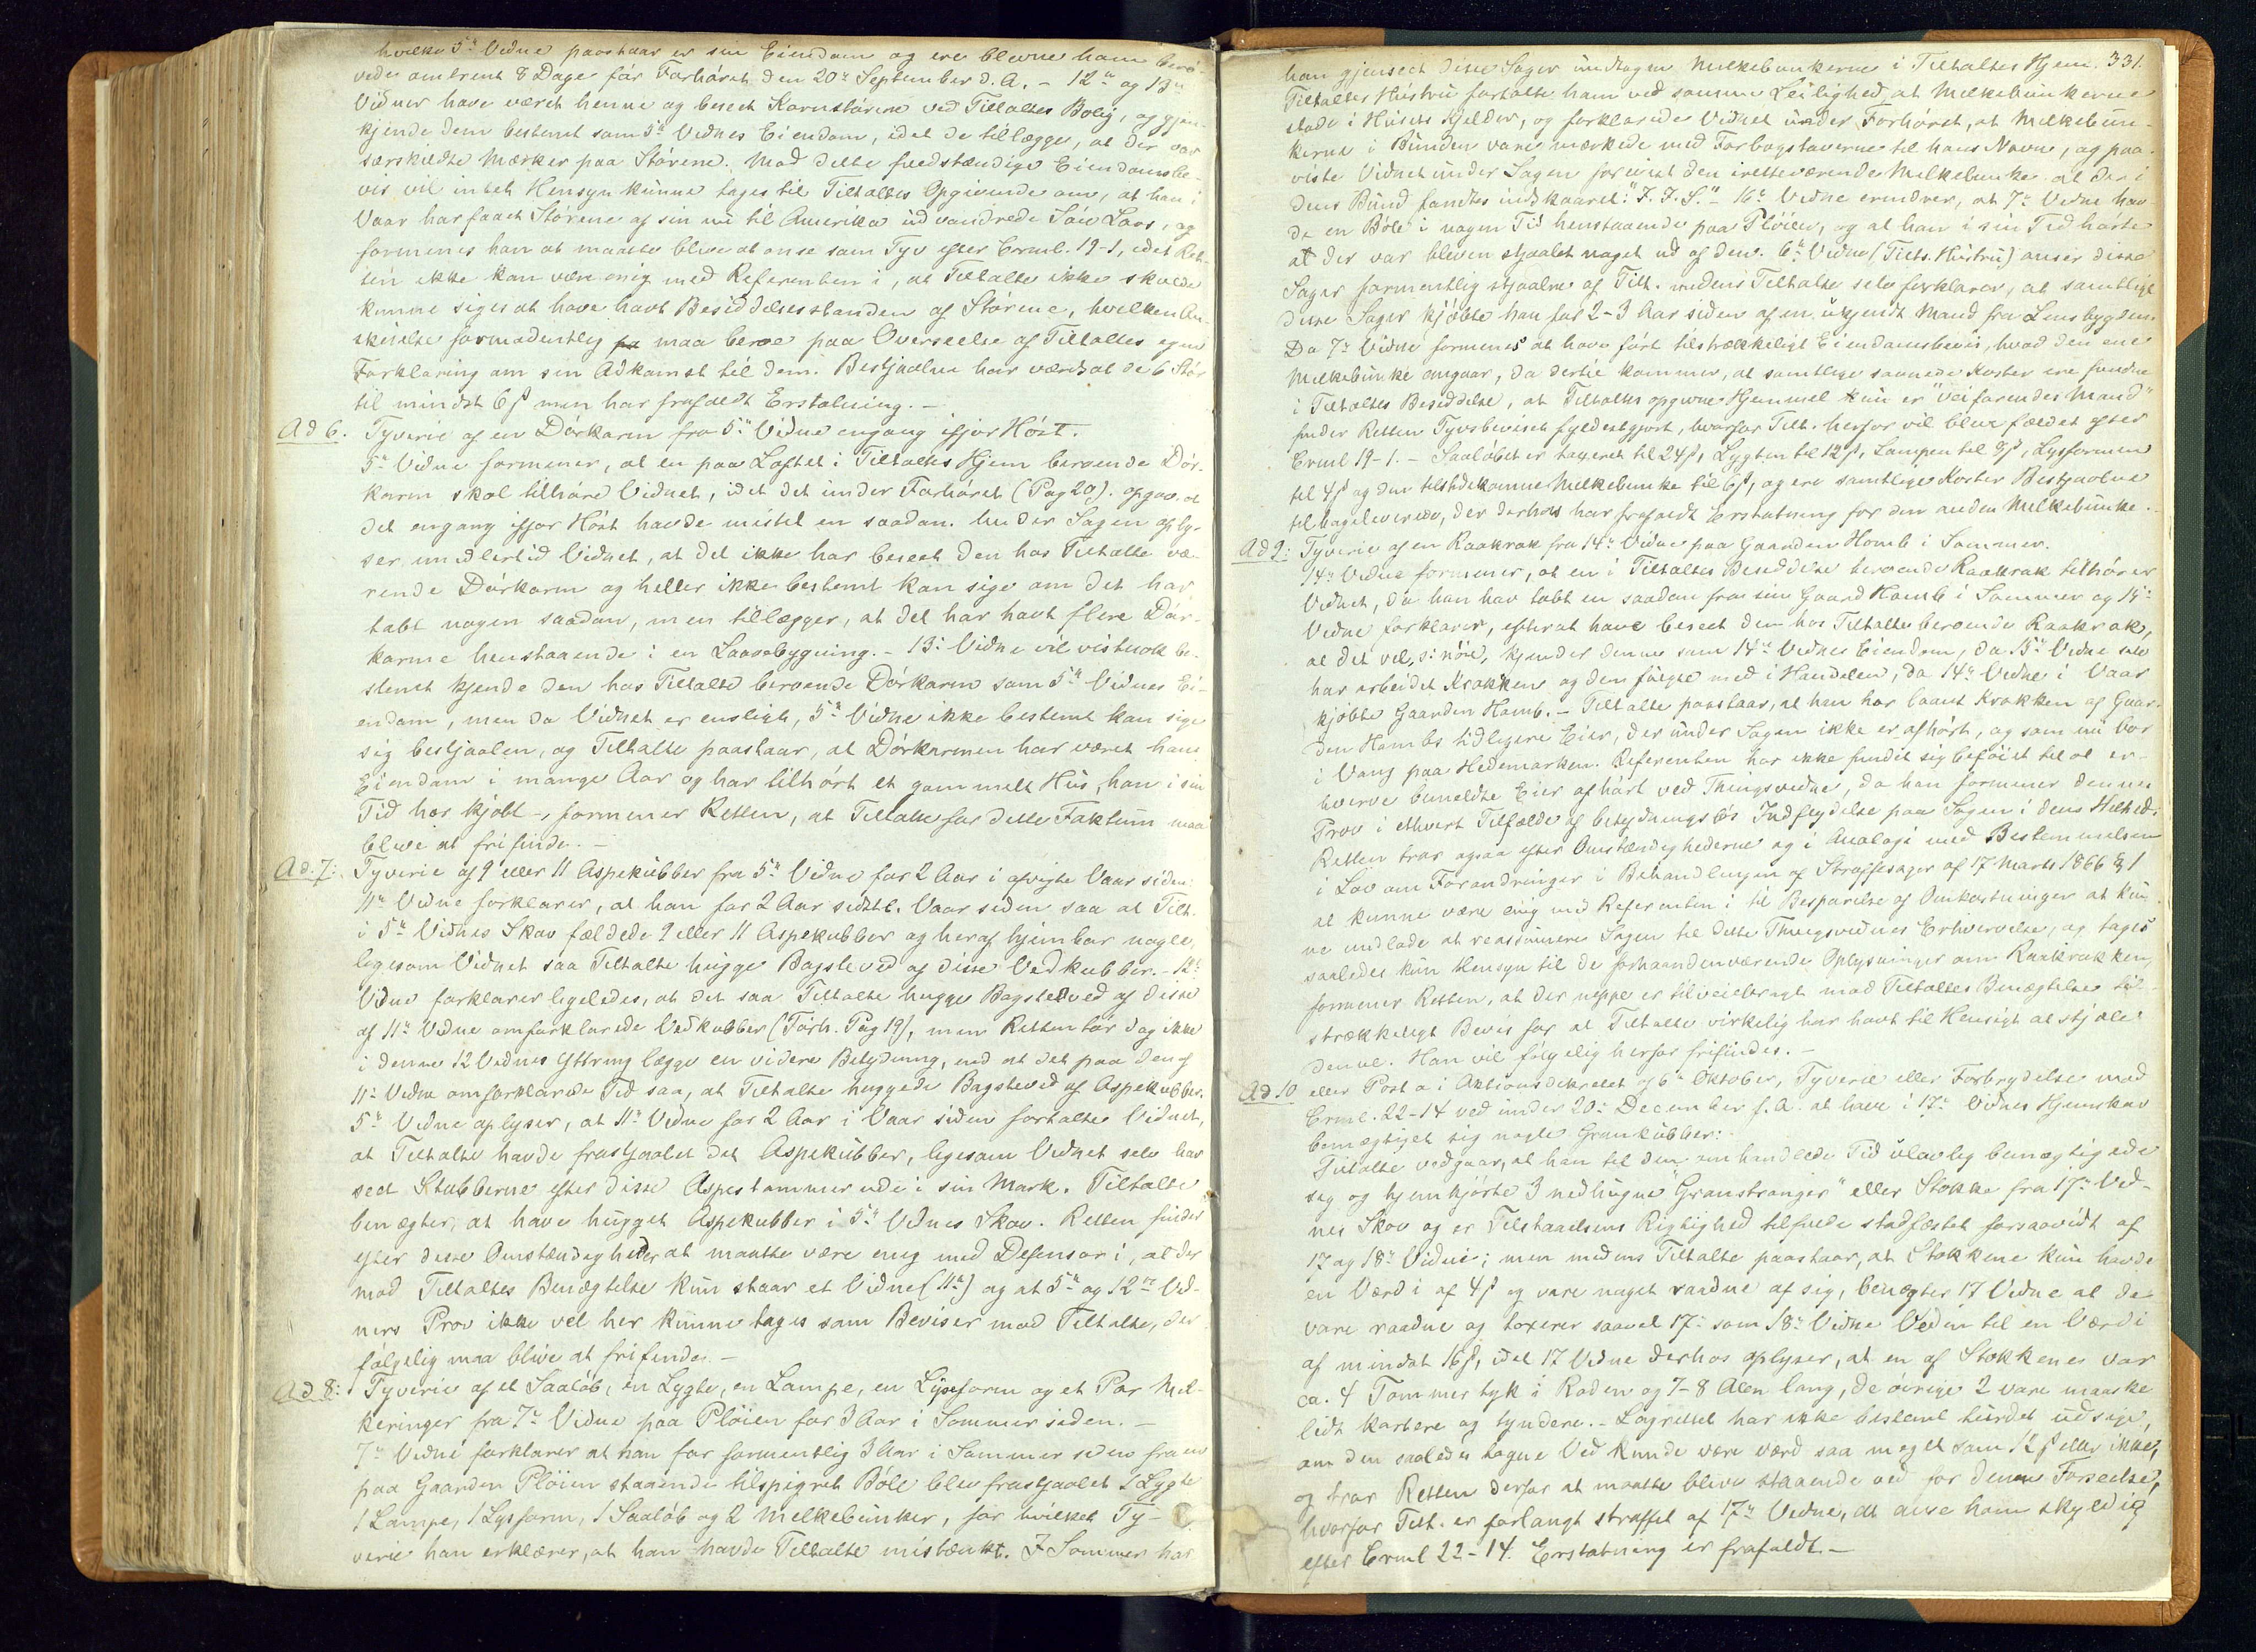 hvilke 5te Vidne paastaar er sin Eiendom og ere blevne ham berø-
vede omtrent 8 Dage før Forhøret den 20de September d. A. - 12te og 13de
Vidner have været henne og beseet Kornstørene ved Tiltaltes Bolig, og gjen-
kjende dem bestemt som 5te Vidnes Eiendom, idet de tillægge, at der var
særskildte Mærker paa Størene. Mod dette fuldstændige Eiendomsbe-
vis vil intet Hensyn kunne tages til Tiltaltes Opgivende om, at han i
Vaar har faaet Størene af sin nu til Amerika udvandrede Søn Lars, og
formenes han at maatte blive at anse som Tyv efter Crml. 19-1, idet Ret-
ten ikke kan være enig med Referenten i, at Tiltalte ikke skulde
kunne siges at have havt Besiddelsesstanden af Størene, hvilken An-
skuelse formodentlig maa beroe paa Overseelse af Tiltaltes egen
Forklaring om sin Adkomst til dem. Bestjaalne har værdsat de 6 Stør
til mindst 6 ß men har frafaldt Erstatning. -
Ad 6. Tyverie af en Dørkarm fra 5te Vidne engang ifjor Høst.
5te Vidne formener, at en paa Loftet i Tiltaltes Hjem beroende Dør-
karm skal tilhøre Vidnet, idet det under Forhøret (Pag 20). opgav. at
det engang ifjor Høst havde mistet en saadan. Under Sagen oply-
ser imidlertid Vidnet, at det ikke har beseet den hos Tiltalte væ-
rende Dørkarm og heller ikke bestemt kan sige om det har
tabt nogen saadan, men tillægger, at det har havt flere Dør-
karme henstaaende i en Laavebygning. - 13de Vidne vil vistnok be-
stemt kjende den hos Tiltalte beroende Dørkarm som 5te Vidnes Ei-
endom, men da Vidnet er ensligt, 5te Vidne ikke bestemt kan sige
sig bestjaalen, og Tiltalte paastaar, at Dørkarmen har været hans
Eiendom i mange Aar og har tilhørt et gammelt Hus, han i sin
Tid har kjøbt -, formener Retten, at Tiltalte for dette Faktum maa
blive at frifinde. -
Ad. 7: Tyverie af 9 eller 11 Aspekubber fra 5te Vidne for 2 Aar i afvigte Vaar siden.
11te Vidne forklarer, at han for 2 Aar sidstl. Vaar siden saa at Tilt.
i 5te Vidnes Skov fældede 9 eller 11 Aspekubber og heraf hjembar nogle,
ligesom Vidnet saa Tiltalte hugge Bagsteved af disse Vedkubber. - 12te
Vidne forklarer ligeledes, at det saa Tiltalte hugge Bagsteved af disse
af 11te Vidne omforklarede Vedkubber (Forh. Pag 19), men Retten tør dog ikke
i denne 12 Vidnes Yttring lægge en videre Betydning, end at det paa den af
11te Vidne omforklarede Tid saa, at Tiltalte huggede Bagsteved af Aspekubber.
5te Vidne oplyser, at 11te Vidne for 2 Aar i Vaar siden fortalte Vidnet,
at Tiltalte havde frastjaalet det Aspekubber, ligesom Vidnet selv har
seet Stubberne efter disse Aspestammer ude i sin Mark. Tiltalte
benægter, at have hugget Aspekubber i 5te Vidnes Skov. Retten finder
efter disse Omstændigheder at maatte være enig med Defensor i, at der
mod Tiltaltes Benægtelse kun staar et Vidne (11te) og at 5te og 12te Vid-
ners Prov ikke vel her kunne tages som Beviser mod Tiltalte, der
følgelig maa blive at frifinde. -
Ad. 8: Tyverie af et Saaløb, en Lygte, en Lampe, en Lyseform og et Par Mel-
keringer fra 7de Vidne paa Pløien for 3 Aar i Sommer siden. -
7de Vidne forklarer at han for formentlig 3 Aar i Sommer siden fra en
paa Gaarden Pløien staaende tilspigret Bøle blev frastjaalet 1 Lygte
1 Lampe, 1 Lysform, 1 Saaløb og 2 Melkebunker, for hvilket Ty-
verie han erklærer, at han havde Tiltalte mistænkt. I Sommer har
331.
han gjenseet disse Sager undtagen Melkebunkerne i Tiltaltes Hjem.
Tiltaltes Hustru fortalte ham ved samme Leilighed, at Melkebunkerne
stode i Husets Kjelder, og forklarede Vidnet under Forhøret, at Melkebun-
kerne i Bunden vare mærkede med Forbogstaverne til hans Navne, og paa-
viste Vidnet under Sagen forevist den iretteværende Melkebunke at der i
dens Bund fandtes indskaaret: "J. J. S." - 16de Vidne erindrer, at 7de Vidne hav-
de en Bøle i nogen Tid henstaaende paa Pløien, og at han i sin Tid hørte
at der var bleven stjaalet noget ud af den. 6te Vidne (Tilts. Hustru) anser disse
Sager formentlig stjaalne af Tilt. medens Tiltalte selv forklarer, at samtlige
disse Sager kjøbte han for 2-3 Aar siden af en ukjendt Mand fra Lensbygden.
Da 7de Vidne formenes at have ført tilstrækkeligt Eiendomsbevis, hvad den ene
Melkebunke angaar, da dertil kommer, at samtlige savnede Koster ere fundne
i Tiltaltes Besiddelse, at Tiltaltes opgivne Hjemmel kun er "veifarendes Mand"
finder Retten Tyvsbeviset fyldestgjort, hvorfor Tilt. herfor vil blive fældet efter
Crml 19-1. - Saaløbet er taxeret til 24 ß, Lygten til 12 ß, Lampen til 8 ß, Lysformen
til 4 ß og den tilstedekomne Melkebunke til 6 ß, og ere samtlige Koster Bestjaalne
tilbageleverede, der derhos har frafaldt Erstatning for den anden Melkebunke. -
Ad 9: Tyverie af en Raakrak fra 14de Vidne paa Gaarden Homb i Sommer.
14de Vidne formener, at en i Tiltaltes Besiddelse beroende Raakrak tilhører
Vidnet, da han har tabt en saadan fra sin Gaard Homb i Sommer og 15de
Vidne forklarer, efterat have beseet den hos Tiltalte beroende Raakrak,
at det vel, s: nøie, kjender denne som 14de Vidnes Eiendom, da 15de Vidne selv
har arbeidet Krakken og den fulgte med i Handelen, da 14de Vidne i Vaar
kjøbte Gaarden Homb. - Tiltalte paastaar, at han har laant Krakken af Gaar-
den Hombs tidligere Eier, der under Sagen ikke er afhørt, og som nu bor
i Vang paa Hedemarken. Referenten har ikke fundet sig beføiet til at er-
hverve bemeldte Eier afhørt ved Thingsvidne, da han formener dennes
Prov i ethvert Tilfælde af betydningsløs Indflydelse paa Sagen i dens Helhed.
Retten tror ogsaa efter Omstændighederne og i Analogi med Bestemmelsen
i Lov om Forandringer i Behandlingen af Straffesager af 17 Marts 1866 § 1
at kunne være enig med Referenten i til Besparelse af Omkostninger at kun-
ne undlade at reassumere Sagen til dette Thingsvidnes Erhvervelse, og tages
saaledes kun Hensyn til de forhaandenværende Oplysninger om Raakrakken,
formener Retten, at der neppe er tilveiebragt mod Tiltaltes Benægtelse til-
strækkeligt Bevis for at Tiltalte virkelig har havt til Hensigt at stjæle
denne. Han vil følgelig herfor frifindes. -
Ad. 10 eller Post a i Aktionsdekretet af 6te Oktober, Tyverie eller Forbrydelse mod
Crml. 22-14 ved under 20de December f. A. at have i 17de Vidnes Hjemskov
bemægtiget sig nogle Grankubber:
Tiltalte vedgaar, at han til den omhandlede Tid ulovlig bemægtigede
sig og hjemkjørte 3 nedhugne "Granstranger" eller Stokke fra 17de Vid-
nes Skov og er Tilstaaelsens Rigtighed tilfulde stadfæstet forsaavidt af
17 og 18de Vidne; men medens Tiltalte paastaar, at Stokkene kun havde
en Værdi af 4 ß og vare noget raadne af sig, benægter 17 Vidne at de
vare raadne og taxerer saavel 17de som 18de Vidne Veden til en Værdi
af mindst 16 ß, idet 17 Vidne derhos oplyser, at en af Stokkenes var
ca. 4 Tommer tyk i Roden og 7-8 Alen lang, de øvrige 2 vare maaske
lidt kortere og tyndere. - Lagrettet har ikke bestemt turdet udsige,
om den saaledes tagne Ved kunde være værd saa meget som 12 ß eller ikke,
og tror Retten derfor at maatte blive staaende ved for denne Forseelse,
hvorfor Tilt. er forlangt straffet af 17de Vidne, at anse ham skyldig
efter Crml 22-14. Erstatning er frafaldt. -